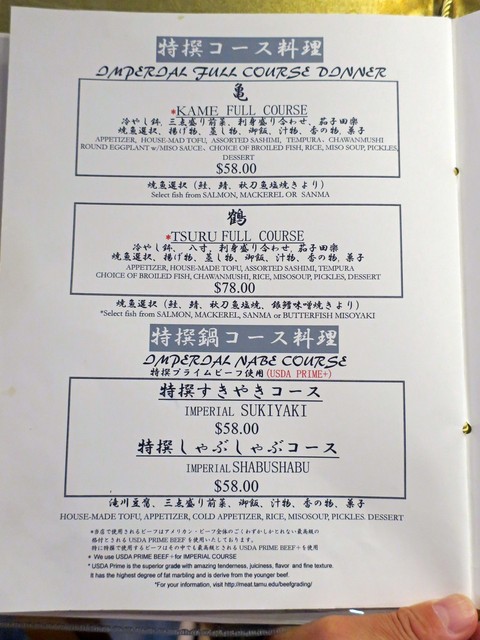 特撰コース料理
IMPERIAL FULL COURSE DINNER
亀
*KAME FULL COURSE
冷やし鉢、三点盛り前菜、刺身盛り合わせ、茄子田楽
焼魚選択、揚げ物、蒸し物、御飯、汁物、香の物、菓子
APPETIZER, HOUSE-MAD TOFU, ASSORTED SASHIMI, TEMPURA, CHAWANMUSHI
ROUND EGGPLANT w/MISO SAUCE, CHOICE OF BROILED FISH, RICE, MISO SOUP, PICKLES,
DESSERT
$58.00
焼魚選択（鮭、鯖、秋刀魚塩焼きより）
Select fish from SALMON, MACKEREL OR SANMA
鶴
*TSURU FULL COURSE
冷やし鉢、八寸、刺身盛り合わせ、茄子田楽
焼魚選択、揚げ物、蒸し物、御飯、汁物、香の物、菓子
APPETIZER, HOUSE-MADE TOFU, ASSORTED SASHIMI, TEMPURA
CHOICE OF BROILED FISH, CHAWANMUSHI, RICE, MISOSOUP, PICKLES, DESSERT
$78.00
焼魚選択（鮭、鯖、秋刀魚塩焼、銀鱈味噌焼きより）
*Select fish from SALMON, MACKEREL, SANMA or BUTTERFISH MISOYAKI
特撰鍋コース料理
IMPERIAL NABE COURSE
特撰プライムビーフ使用(USDA PRIME+)
特撰すきやきコース
IMPERIAL SUKIYAKI
$58.00
特撰しゃぶしゃぶコース
IMPERIAL SHABUSHABU
$58.00
滝川豆腐、三点盛り前菜、御飯、汁物、香の物、菓子
HOUSE-MADE TOFU, APPETIZER, COLD APPETIZER, RICE, MISOSOUP, PICKLES. DESSERT
*当店で使用されるビーフはアメリカン・ビーフ全体のごくわずかしかとれない最高級の
格付けとされる USDA PRIME BEEF を使い致しております。
特に特撰で使用するビーフはその中でも最高級とされる USDA PRIME BEEF+を使用
* We use USDA PRIME BEEF+ for IMPERIAL COURSE
* USDA Prime is the superior grade with amazing tenderness, juiciness, flavor and fine texture.
It has the highest degree of fat marbling and is derive from the younger beef.
*For your information, visit http://meat.tamu.edu/beefgrading/